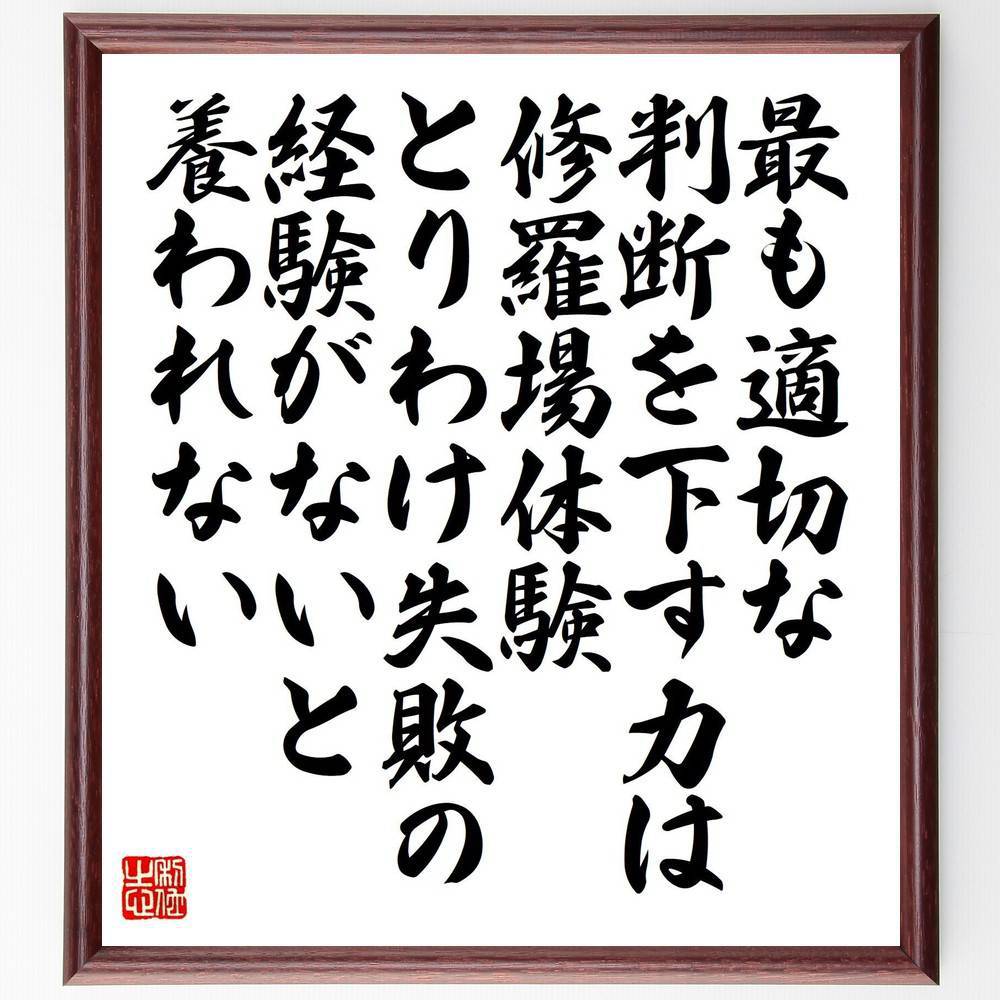 最も適切な
判断を下す力は
修羅場体験
とりわけ失敗の
経験がないと
養われない